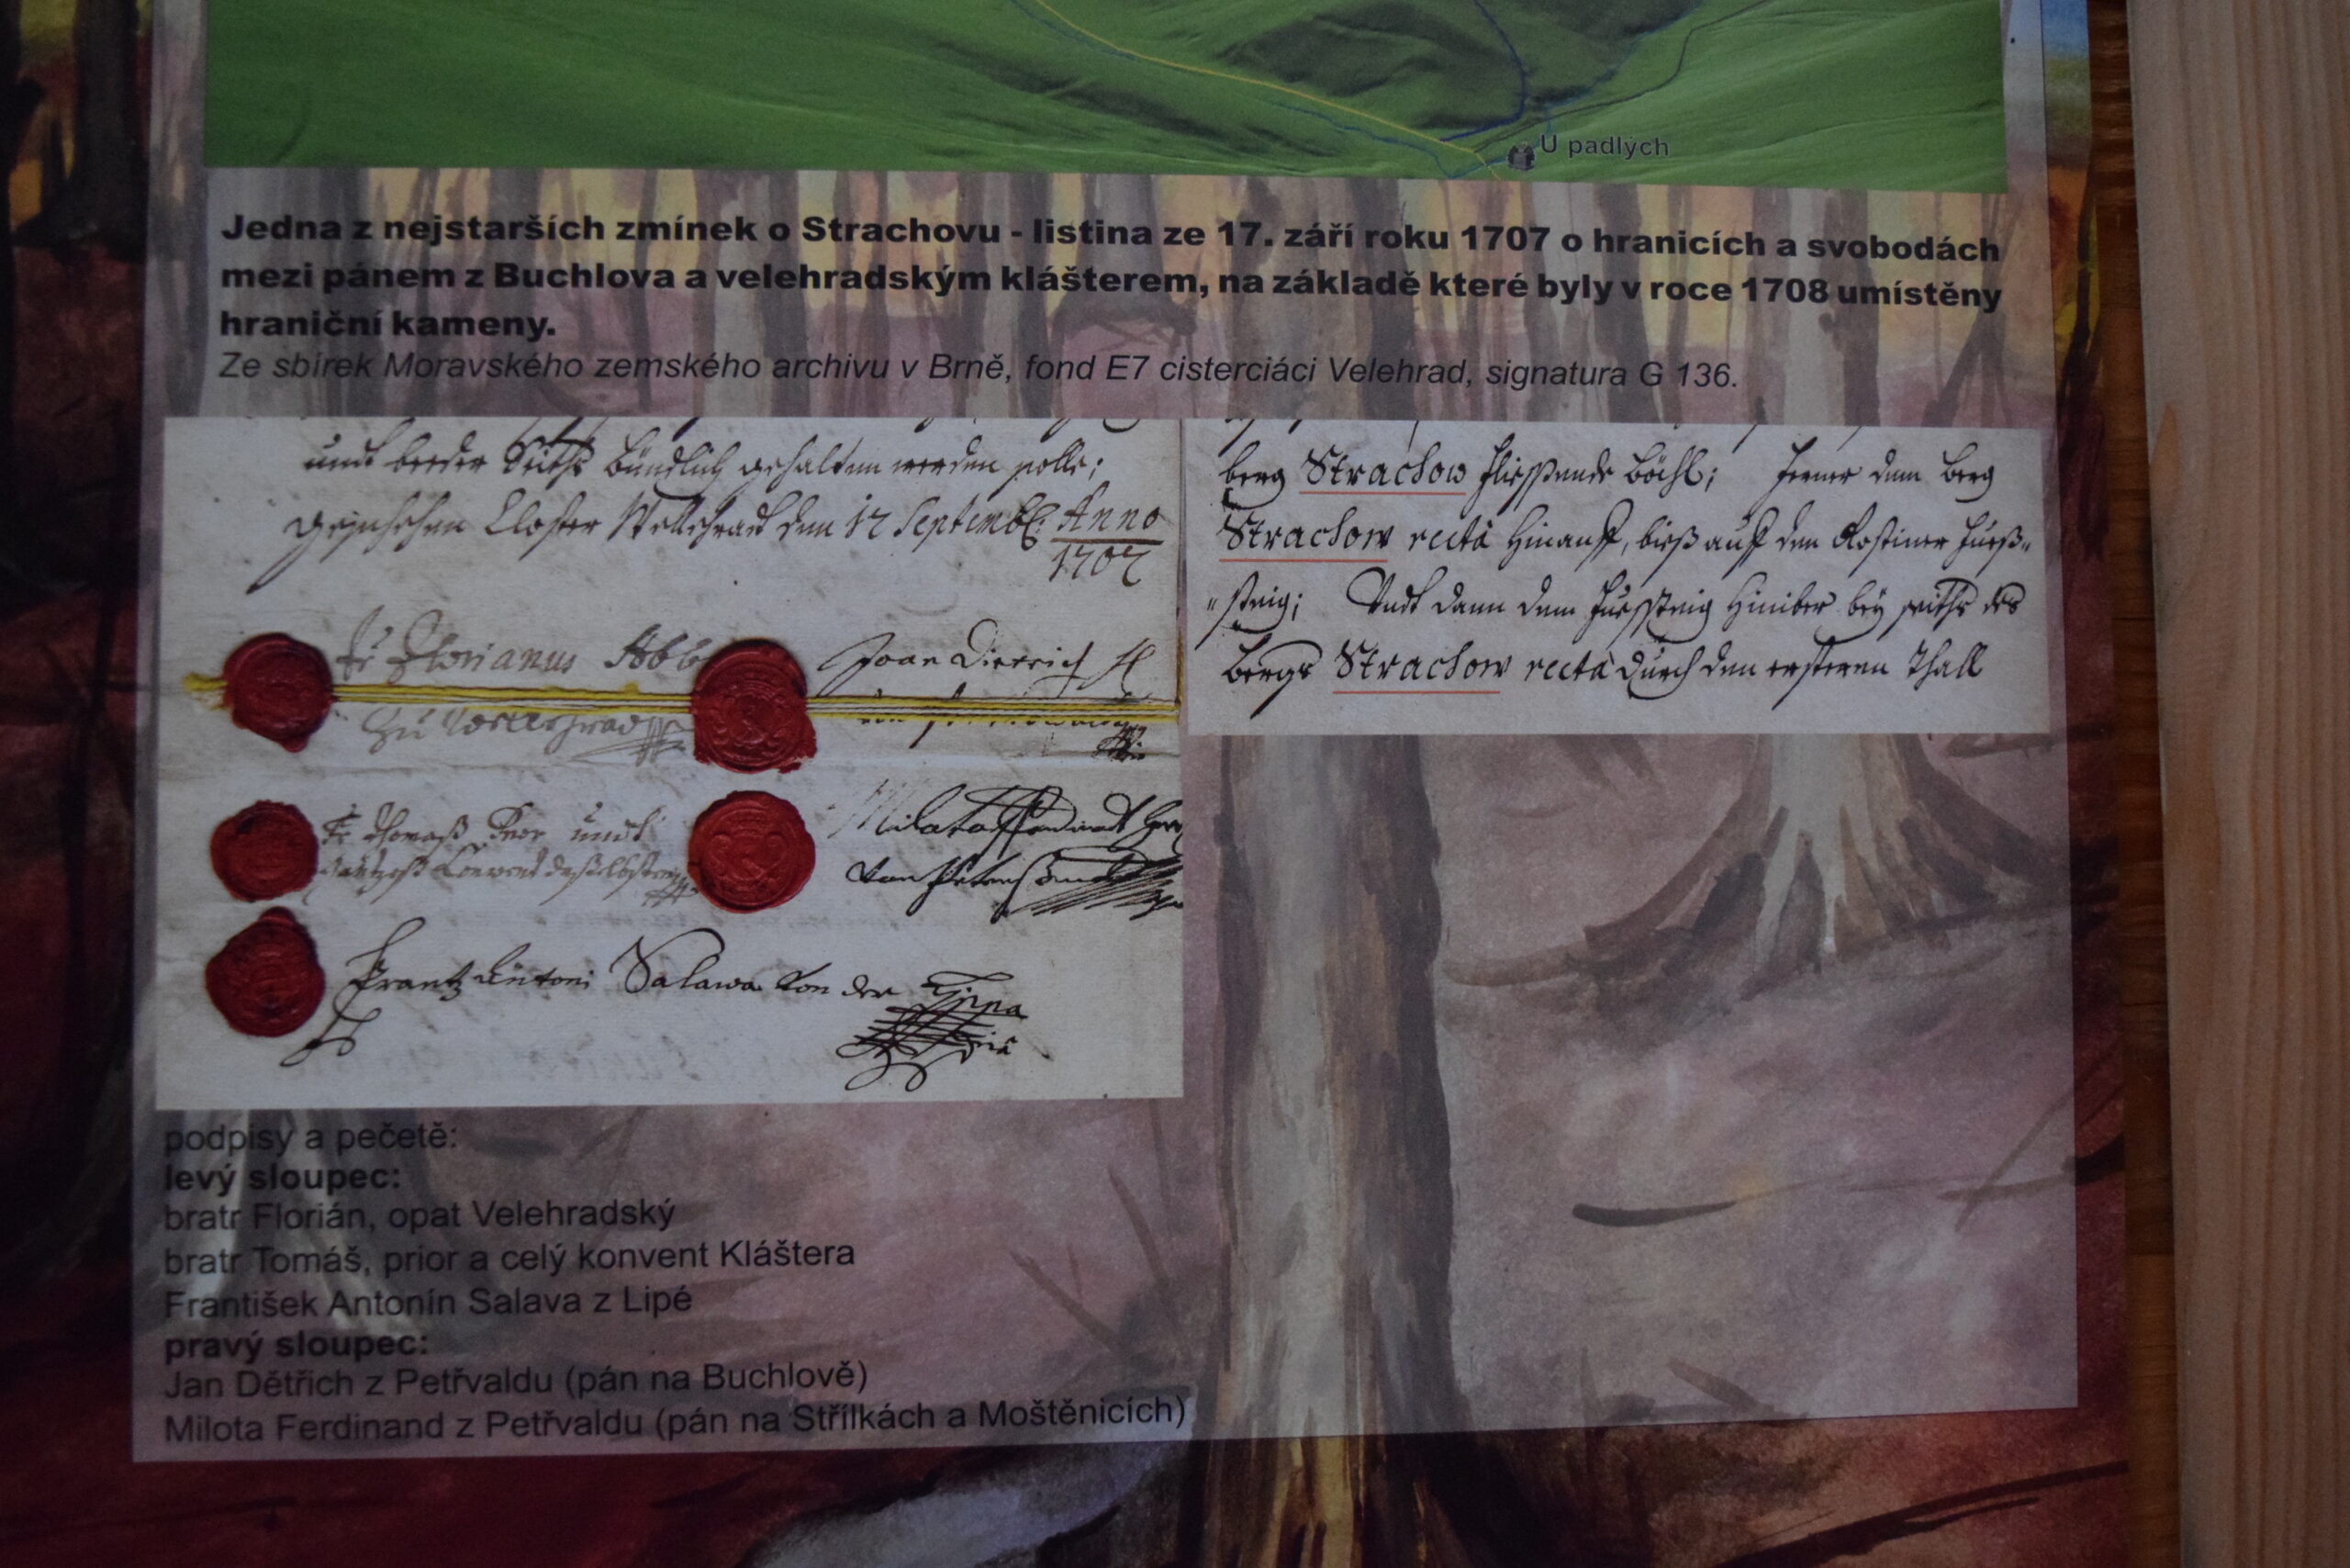 U padlých
Jedna z nejstarších zmínek o Strachovu - listina ze 17. září roku 1707 o hranicích a svobodách
mezi pánem z Buchlova a velehradským klášterem, na základě které byly v roce 1708 umístěny
hraniční kameny.
Ze sbírek Moravského zemského archivu v Brně, fond E7 cisterciáci Velehrad, signatura G 136.
undt beeder Seiths Bündlich gehalten werden solle;
geschehen Closter Wellehradt den 17 Septembr: Anno
1707
fr Florianus Abb
Zu Wellehrad
Joan Dietrich
fr Thomaß Prior undt
Convent deß Closters
Milota Ferdinandt
Von
Frantz Antoni Salawa von der Lippa
berg Strachow flüssende Bächl; ferner dem Berg
Strachow rectà hinauff, bieß auff den Rostiner Fueß-
steig; Undt dann dem Fuessteig hinüber bey seiths des
Bergs Strachow rectà durch den ersteren Thall
podpisy a pečetě:
levý sloupec:
bratr Florián, opat Velehradský
bratr Tomáš, prior a celý konvent Kláštera
František Antonín Salava z Lipé
pravý sloupec:
Jan Dětřich z Petřvaldu (pán na Buchlově)
Milota Ferdinand z Petřvaldu (pán na Střílkách a Moštěnicích)